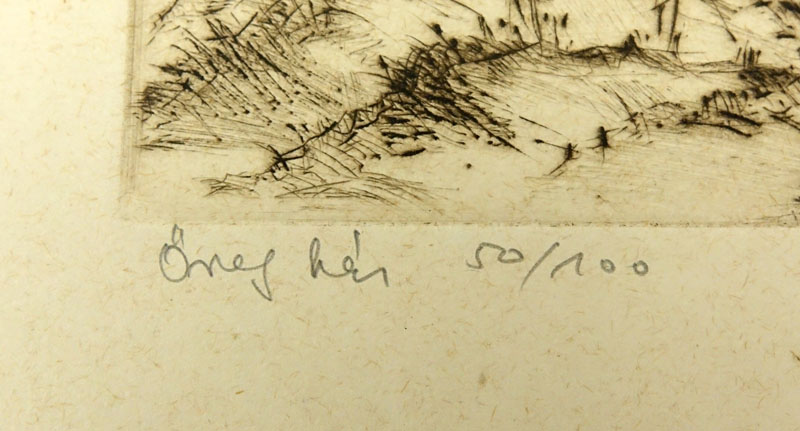 Öreg ház 50/100